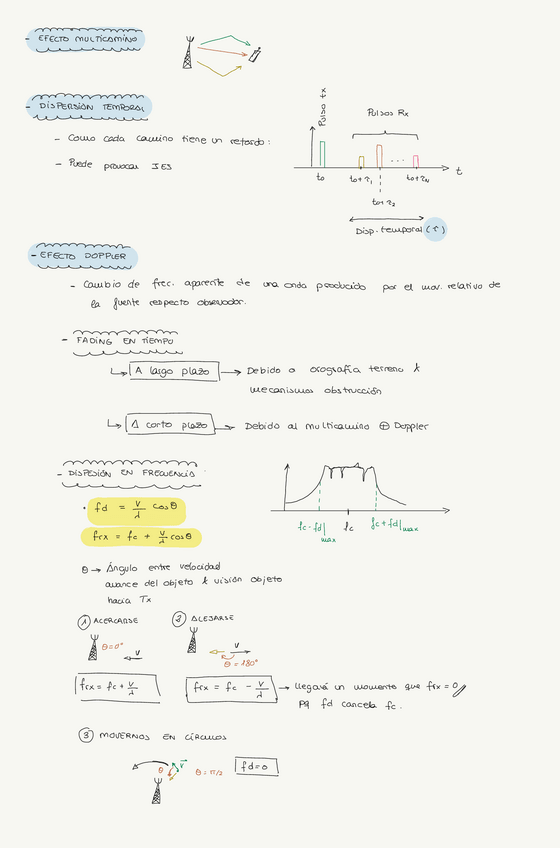 - EFECTO MULTICAMINO
- DISPERSIÓN TEMPORAL
Pulso tx
Pulsos Rx
- Como cada camino tiene un retardo:
- Puede provocar IES
to
to+τ1
to+τ2
...
to+τN
t
Disp. temporal (τ)
- EFECTO DOPPLER
- Cambio de frec. aparente de una onda producido por el mov. relativo de
la fuente respecto observador.
- FADING EN TIEMPO
A largo plazo → Debido a orografía terreno &
mecanismos obstrucción
A corto plazo → Debido al multicamino ⊕ Doppler
- DISPESIÓN EN FRECUENCIA
· fd = v/λ cosθ
frx = fc + v/λ cosθ
fc - fd|max
fc
fc + fd|max
θ → Ángulo entre velocidad
avance del objeto & visión objeto
hacia Tx
① ACERCARSE
② ALEJARSE
θ=0°
v
v
θ = 180°
frx = fc + v/λ
frx = fc - v/λ → llegará un momento que frx = 0
pq fd cancela fc.
③ MOVERNOS EN CÍRCULOS
θ
v
θ = π/2
fd=0